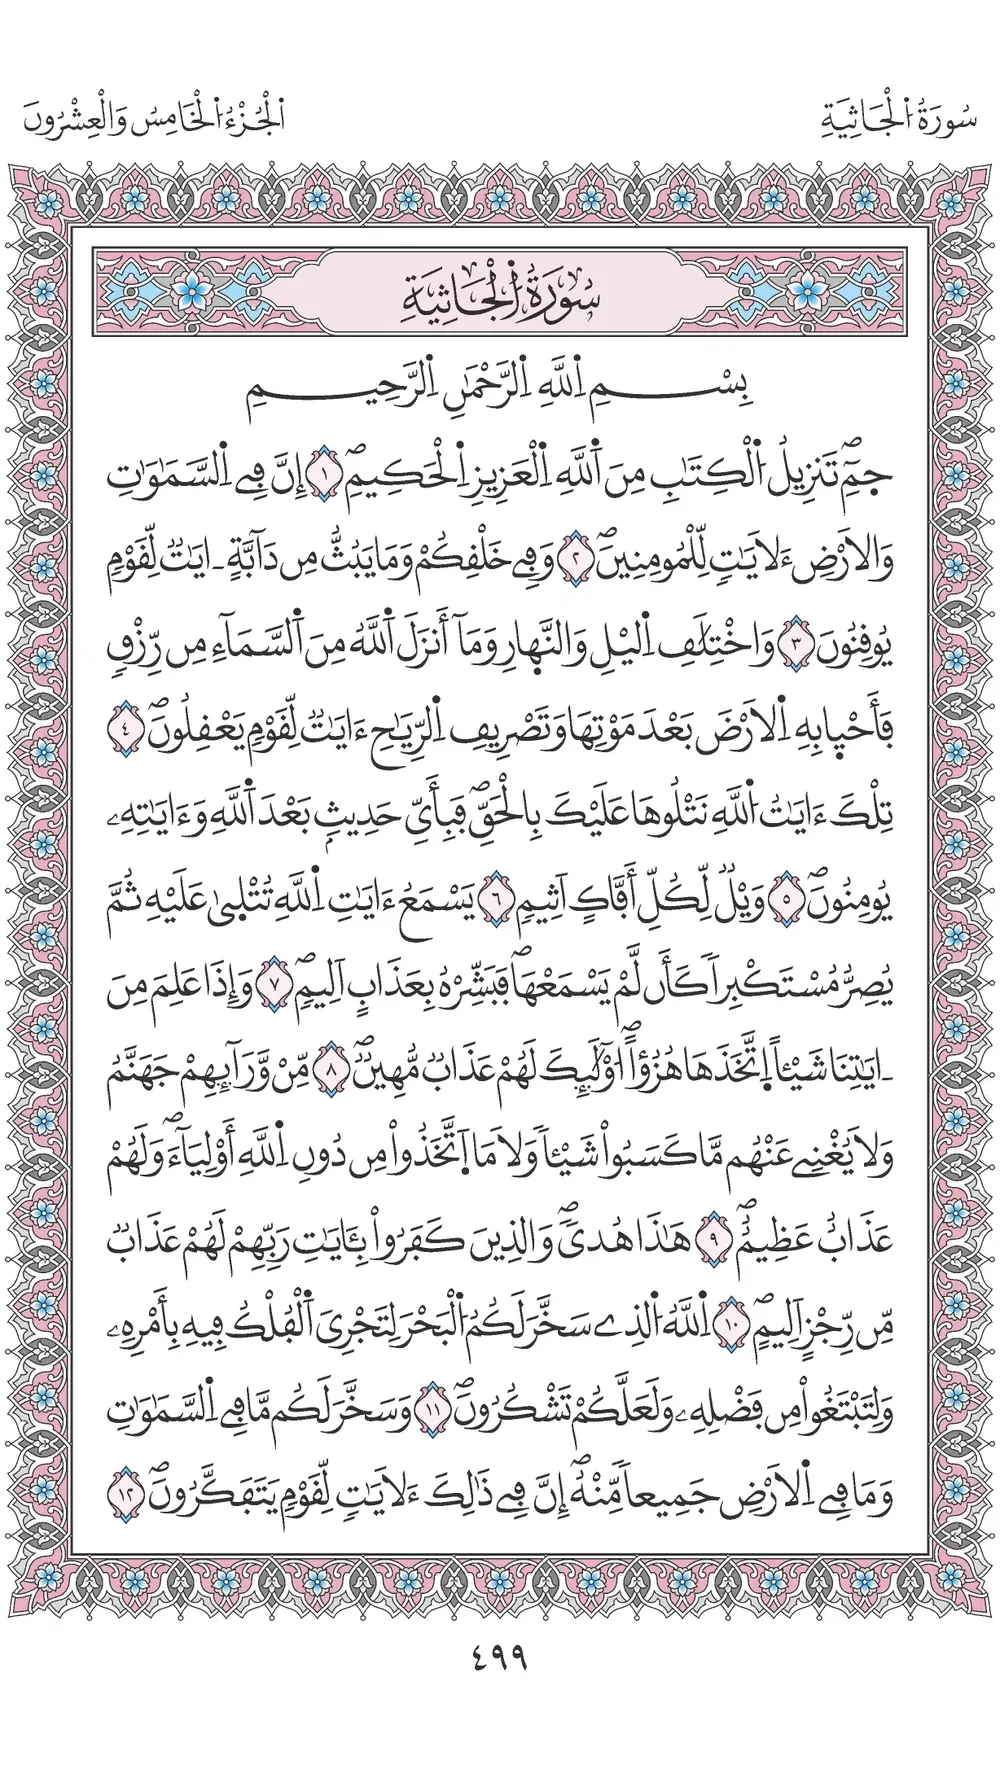 سُورَةُ اُ۬لْجَاثِيَةِ
اَ۬لْجُزْءُ اُ۬لْخَامِسُ وَالْعِشْرُونَ
سُورَةُ اُ۬لْجَاثِيَةِ
بِسْمِ اِ۬للَّهِ اِ۬لرَّحْمَٰنِ اِ۬لرَّحِيمِ
جمِٓۖ تَنزِيلُ اُ۬لْكِتَٰبِ مِنَ اَ۬للَّهِ اِ۬لْعَزِيزِ اِ۬لْحَكِيمِۖ ١ إِنَّ فِے اِ۬لسَّمَٰوَٰتِ
وَالَارْضِ ءَلَايَٰتٖ لِّلْمُومِنِينَۖ ٢ وَفِے خَلْقِكُمْ وَمَا يَبُثُّ مِن دَآبَّةٍ ـ اٰيَٰتٞ لِّقَوْمٖ
يُوقِنُونَ ٣ وَاخْتِلَٰفِ اِ۬ليْلِ وَالنَّه۪ارِ وَمَآ أَنزَلَ اَ۬للَّهُ مِنَ اَ۬لسَّمَآءِ مِن رِّزْقٖ
فَأَحْي۪ا بِهِ اِ۬لَارْضَ بَعْدَ مَوْتِهَا وَتَصْرِيفِ اِ۬لرِّيَٰحِ ءَايَٰتٞ لِّقَوْمٖ يَعْقِلُونَۖ ٤
تِلْكَ ءَايَٰتُ اُ۬للَّهِ نَتْلُوهَا عَلَيْكَ بِالْحَقِّۖ فَبِأَيِّ حَدِيثِۢ بَعْدَ اَ۬للَّهِ وَءَايَٰتِهِۦ
يُومِنُونَۖ ٥ وَيْلٞ لِّكُلِّ أَفَّاكٍ اَثِيمٖ ٦ يَسْمَعُ ءَايَٰتِ اِ۬للَّهِ تُتْل۪يٰ عَلَيْهِ ثُمَّ
يُصِرُّ مُسْتَكْبِراٗ كَأَن لَّمْ يَسْمَعْهَاۖ فَبَشِّرْهُ بِعَذَابٍ اَلِيمٖۖ ٧ وَإِذَا عَلِمَ مِنَ
ـ اٰيَٰتِنَا شَيْـٔاً اِ۪تَّخَذَهَا هُزُؤاًۖ ا۟وْلَٰٓئِكَ لَهُمْ عَذَابٞ مُّهِينٞۖ ٨ مِّنْ وَّرَآئِهِمْ جَهَنَّمُ
وَلَا يُغْنِے عَنْهُم مَّا كَسَبُواْ شَيْـٔاٗ وَلَا مَا اَ۪تَّخَذُواْ مِن دُونِ اِ۬للَّهِ أَوْلِيَآءَۖ وَلَهُمْ
عَذَابٌ عَظِيمٌۖ ٩ هَٰذَا هُديٗۖ وَالذِينَ كَفَرُواْ بِـَٔايَٰتِ رَبِّهِمْ لَهُمْ عَذَابٞ
مِّن رِّجْزٍ اَلِيمٖۖ ١٠ اِ۬للَّهُ اُ۬لذِے سَخَّرَ لَكُمُ اُ۬لْبَحْرَ لِتَجْرِيَ اَ۬لْفُلْكُ فِيهِ بِأَمْرِهِۦ
وَلِتَبْتَغُواْ مِن فَضْلِهِۦ وَلَعَلَّكُمْ تَشْكُرُونَۖ ١١ وَسَخَّرَ لَكُم مَّا فِے اِ۬لسَّمَٰوَٰتِ
وَمَا فِے اِ۬لَارْضِ جَمِيعاٗ مِّنْهُۖ إِنَّ فِے ذَٰلِكَ ءَلَايَٰتٖ لِّقَوْمٖ يَتَفَكَّرُونَۖ ١٢
٤٩٩